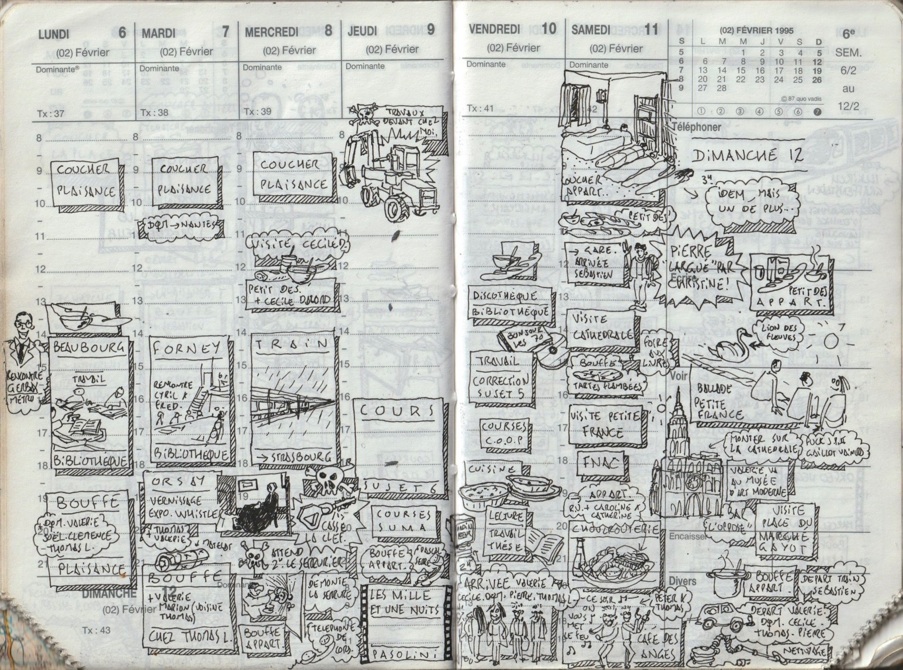 LUNDI 6
(02) Février
Dominante
Tx : 37
8
9
10
COUCHER
PLAISANCE
11
12
13
14
BEAUBOURG
TRAVAIL
BIBLIOTHEQUE
RENCONTRE
GERBER
METRO
BOUFFE
DOM. VALERIE
JOEL. CLEMENCE
THOMAS L.
PLAISANCE
DIMANCHE
(02) Février
Tx : 43
MARDI 7
(02) Février
Dominante
Tx : 38
COUCHER
PLAISANCE
DOM → NANTES
FORNEY
RENCONTRE
CYRIL &
FRED.
BIBLIOTHEQUE
ORSAY
VERNISSAGE
EXPO. WHISTLER
+ THOMAS
VALERIE
BOUFFE
+ VALERIE
MARION
THOMAS
CHEZ THOMAS L.
MERCREDI 8
(02) Février
Dominante
Tx : 39
COUCHER
PLAISANCE
VISITE CECILE D
PETIT DEJ.
+ CECILE
TRAIN
→ STRASBOURG
CASSE
LA CLEF.
ATTEND
2H LE SERRURIER
DEMONTE
LA SERRURE
BOUFFE
APPART
TELEPHONE
JEUDI 9
(02) Février
Dominante
TRAVAUX
DEVANT CHEZ
MOI.
COURS
SUJET 6
COURSES
SUMA
BOUFFE
APPART.
LES MILLE
ET UNE NUITS
PASOLINI
VENDREDI 10
(02) Février
Dominante
Tx : 41
DISCOTHEQUE
BIBLIOTHEQUE
BONJOUR
LES 70
TRAVAIL
CORRECTION
SUJET 5
COURSES
C.O.O.P
CUISINE
LECTURE
TRAVAIL
THESE
ARRIVEE VALERIE
CECILE. DOM. PIERRE. THOMAS
SAMEDI 11
(02) Février
Dominante
COUCHER
APPART.
PETIT DEJ
→ GARE.
ARRIVEE
SEBASTIEN
VISITE
CATHEDRALE
FOIRE
AUX
LIVRES
BOUFFE
TARTES FLAMBEES
VISITE PETITE
FRANCE
FNAC
APPART.
+ CAROLINE &
CATHERINE
CHOUCROUTERIE
PETER &
THOMAS
CAFE DES
ANGES
(02) FÉVRIER 1995
S L M M J V S D
5 1 2 3 4 5
6 6 7 8 9 10 11 12
7 13 14 15 16 17 18 19
8 20 21 22 23 24 25 26
9 27 28
6e
SEM.
6/2
au
12/2
1 2 3 4 5 6 7
Téléphoner
DIMANCHE 12
IDEM, MAIS
UN DE PLUS..
PIERRE
LARGUÉ "PAR
CHRISTINE!
PETIT DEJ
APPART.
LION DES
FLEUVES
Voir
BALLADE
PETITE
FRANCE
MONTER SUR
LA CATHEDRALE
VALERIE VA
AU MUSEE
D'ART MODERNE
VISITE
PLACE DU
MARCHE
GAYOT
Encaisser
Divers
BOUFFE
APPART
DEPART TRAIN
SEBASTIEN
DEPART VALERIE.
DOM. CECILE.
THOMAS. PIERRE
NETTOYAGE